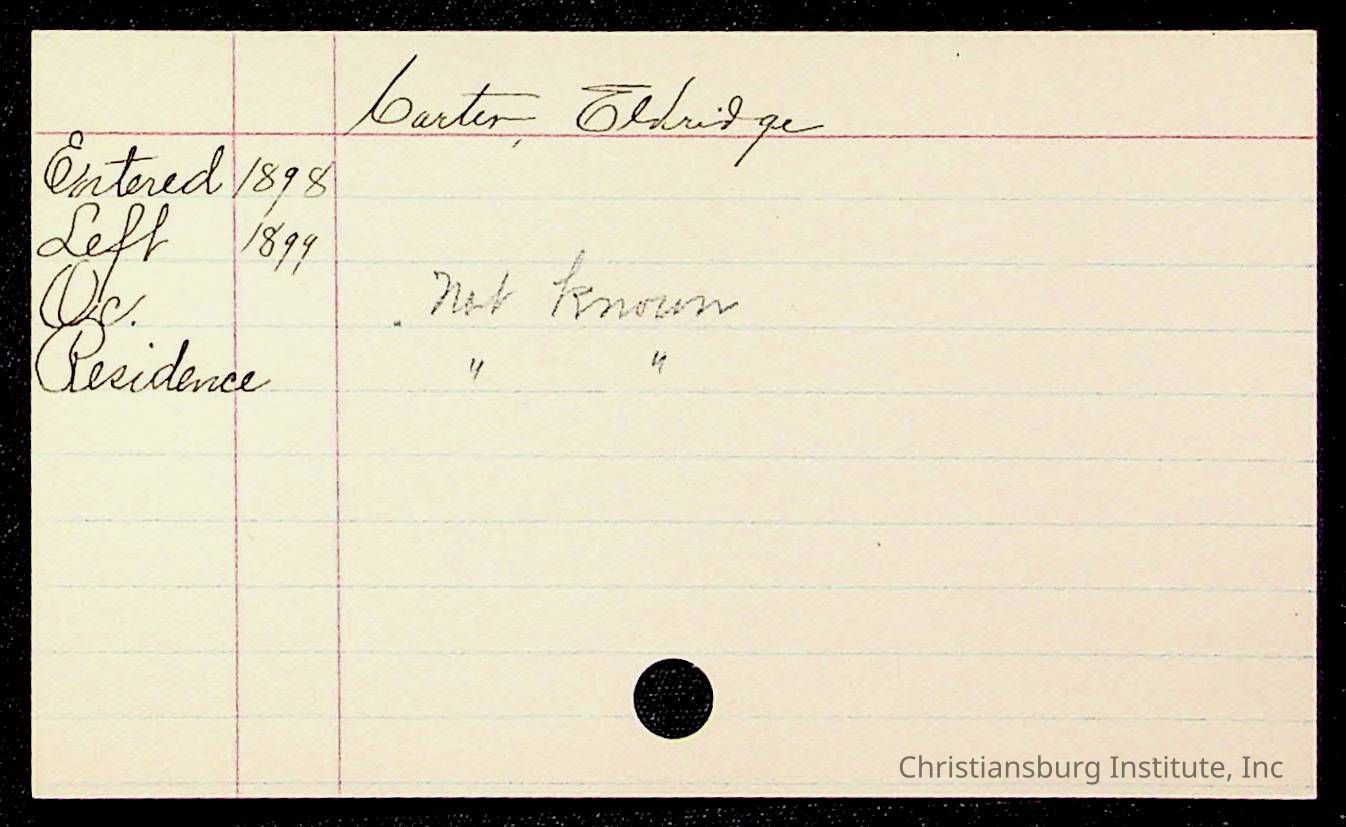 Carter, Eldridge
Entered 1898
Left 1899
Oc. Not known
Residence " "
Christiansburg Institute, Inc